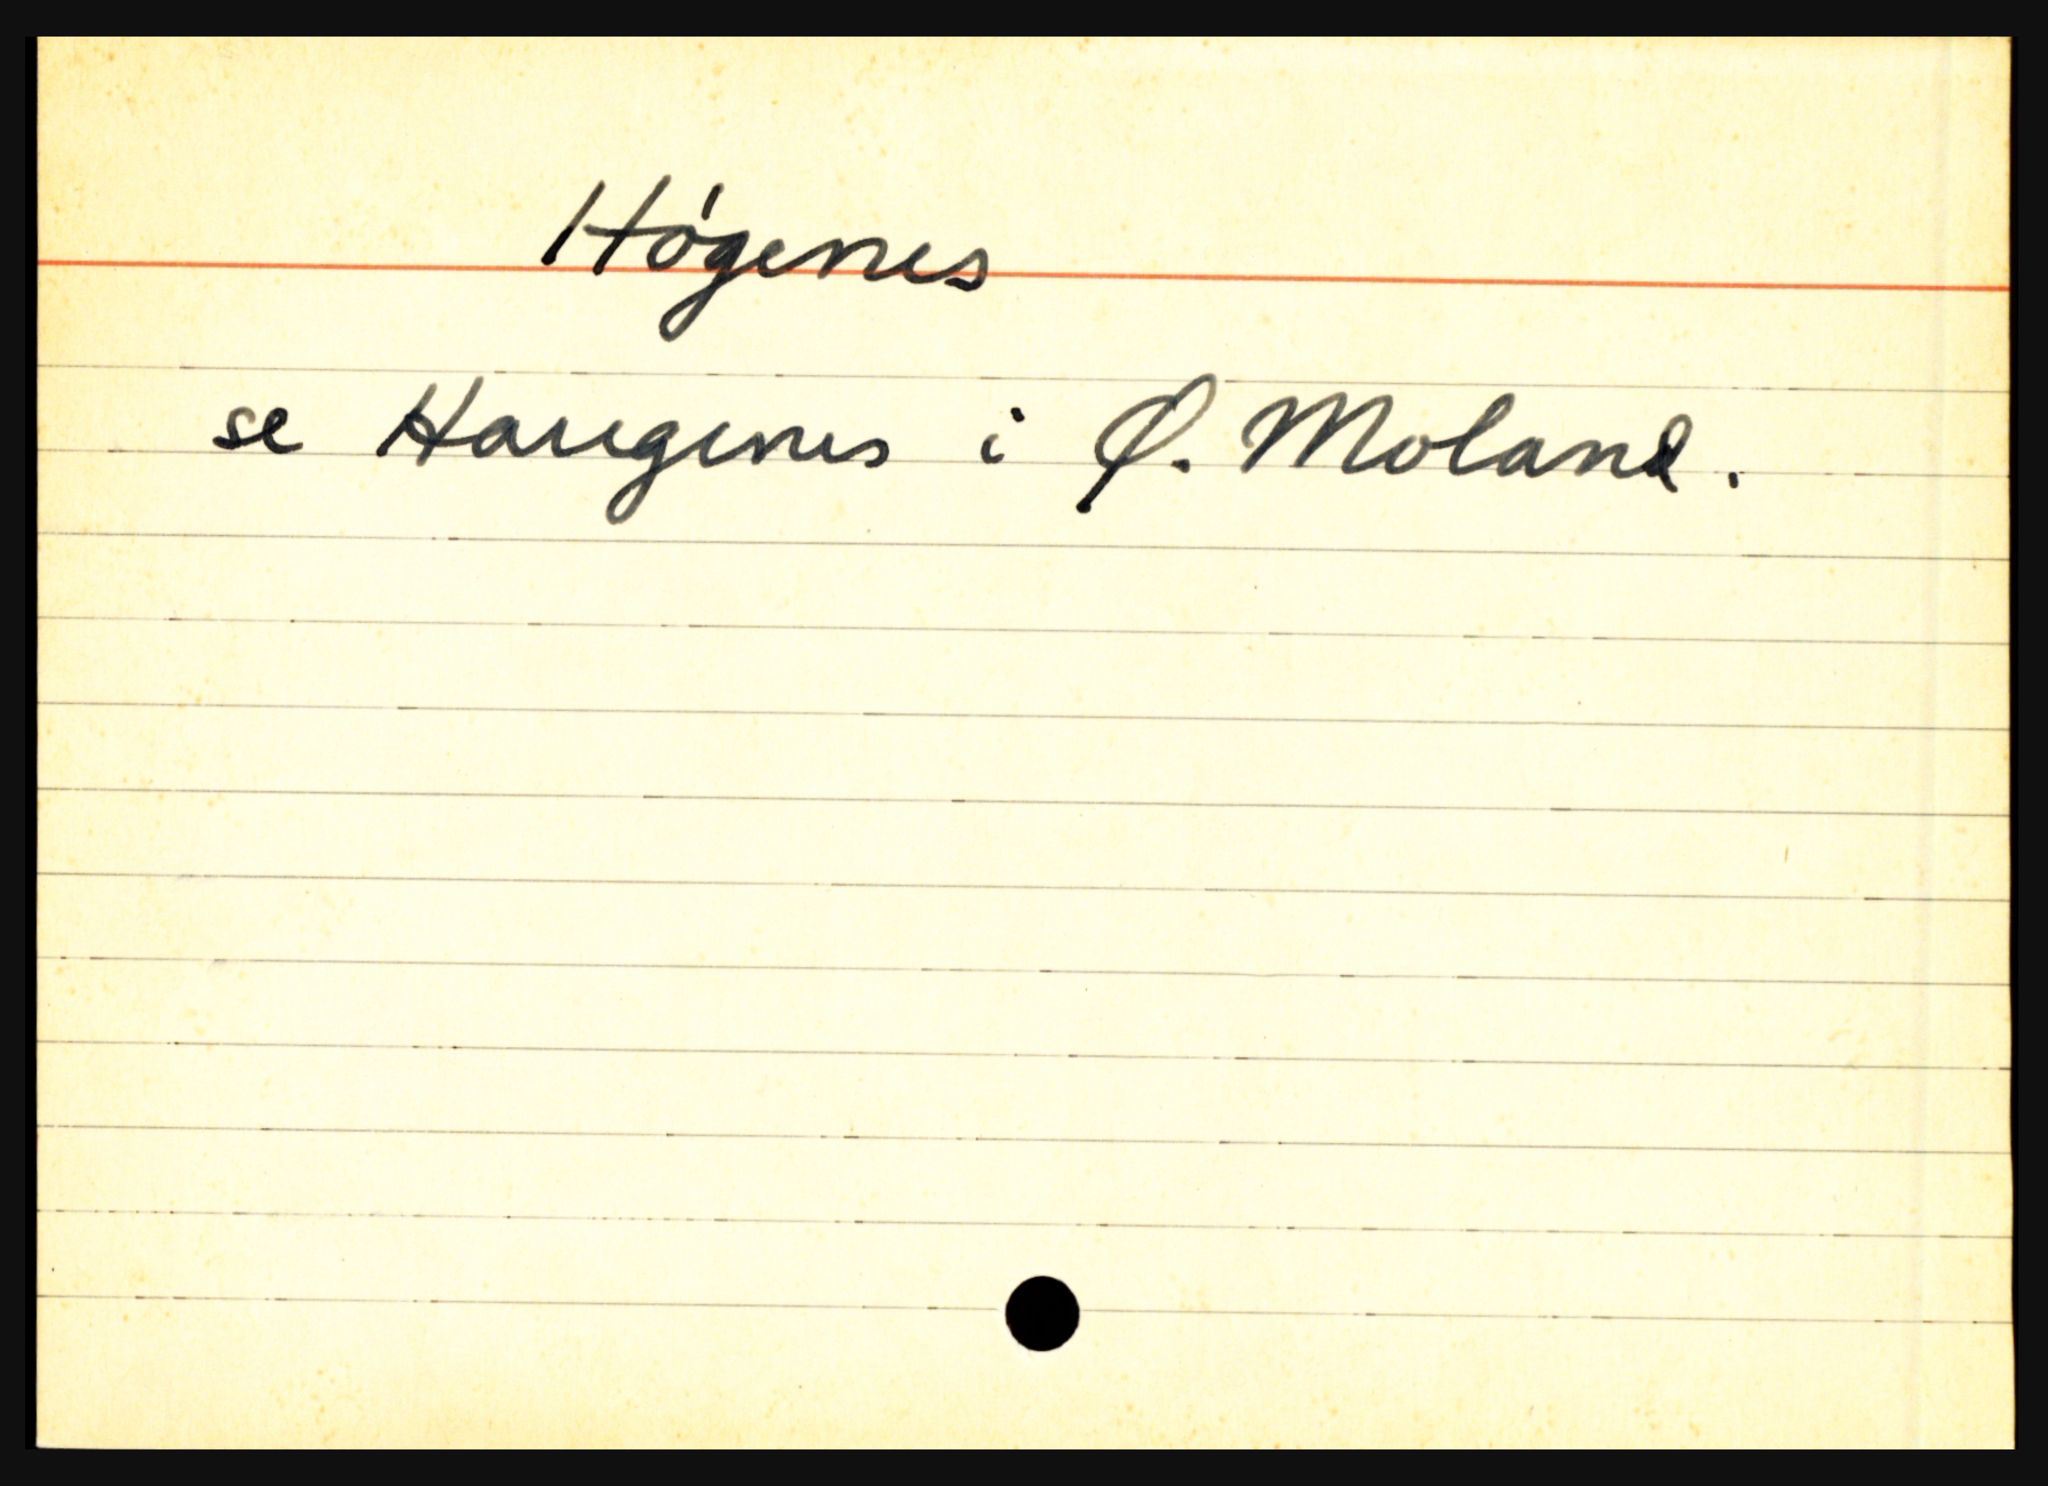 Høgenes
se Haugenes i Ø. Moland.